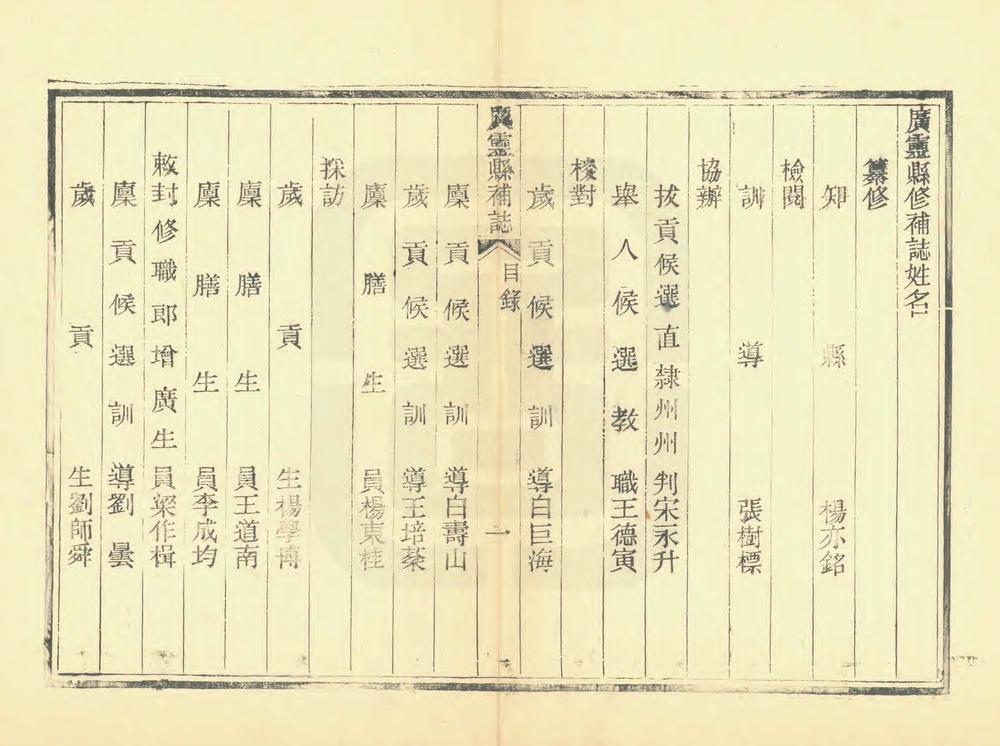 廣靈縣修補誌姓名
纂修
知縣楊亦銘
檢閱
訓導張樹標
協辦
拔貢候選直隸州州判宋永升
舉人候選教職王德寅
校對
歲貢候選訓導白巨海
廣靈縣補誌 目錄 一
廩貢候選訓導白壽山
歲貢候選訓導王培棻
廩膳生員楊東桂
採訪
歲貢生楊學博
廩膳生員王道南
廩膳生員李成均
敕封修職郎增廣生員梁作楫
廩貢候選訓導劉曇
歲貢生劉師舜